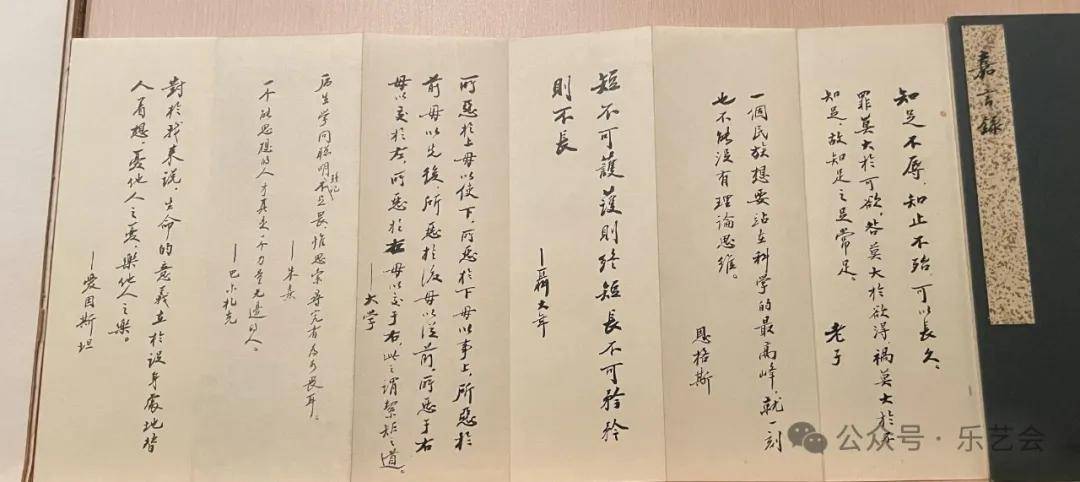 嘉言錄
知足不辱,知止不殆,可以長久。
罪莫大於可欲,咎莫大於欲得,禍莫大於不
知足,故知足之足常足。
老子
一個民族想要站在科学的最高峰,就一刻
也不能没有理論思維。
恩格斯
短不可護護則終短長不可矜矜
則不長
—聶大年
所惡於上毋以使下,所惡於下毋以事上,所惡於
前毋以先後,所惡於後毋以從前,所惡于右
毋以交於左,所惡於左毋以交于右,此之谓絜矩之道。
—大学
后生学问聪明强记不足畏,惟思索寻究者为可畏耳。
—朱熹
一个能思想的人才真是一个力量无边的人。
—巴尔札克
對於我来說,生命的意義在於设身處地替
人着想,憂他人之憂,樂他人之樂。
—愛因斯坦
公众号·乐艺会